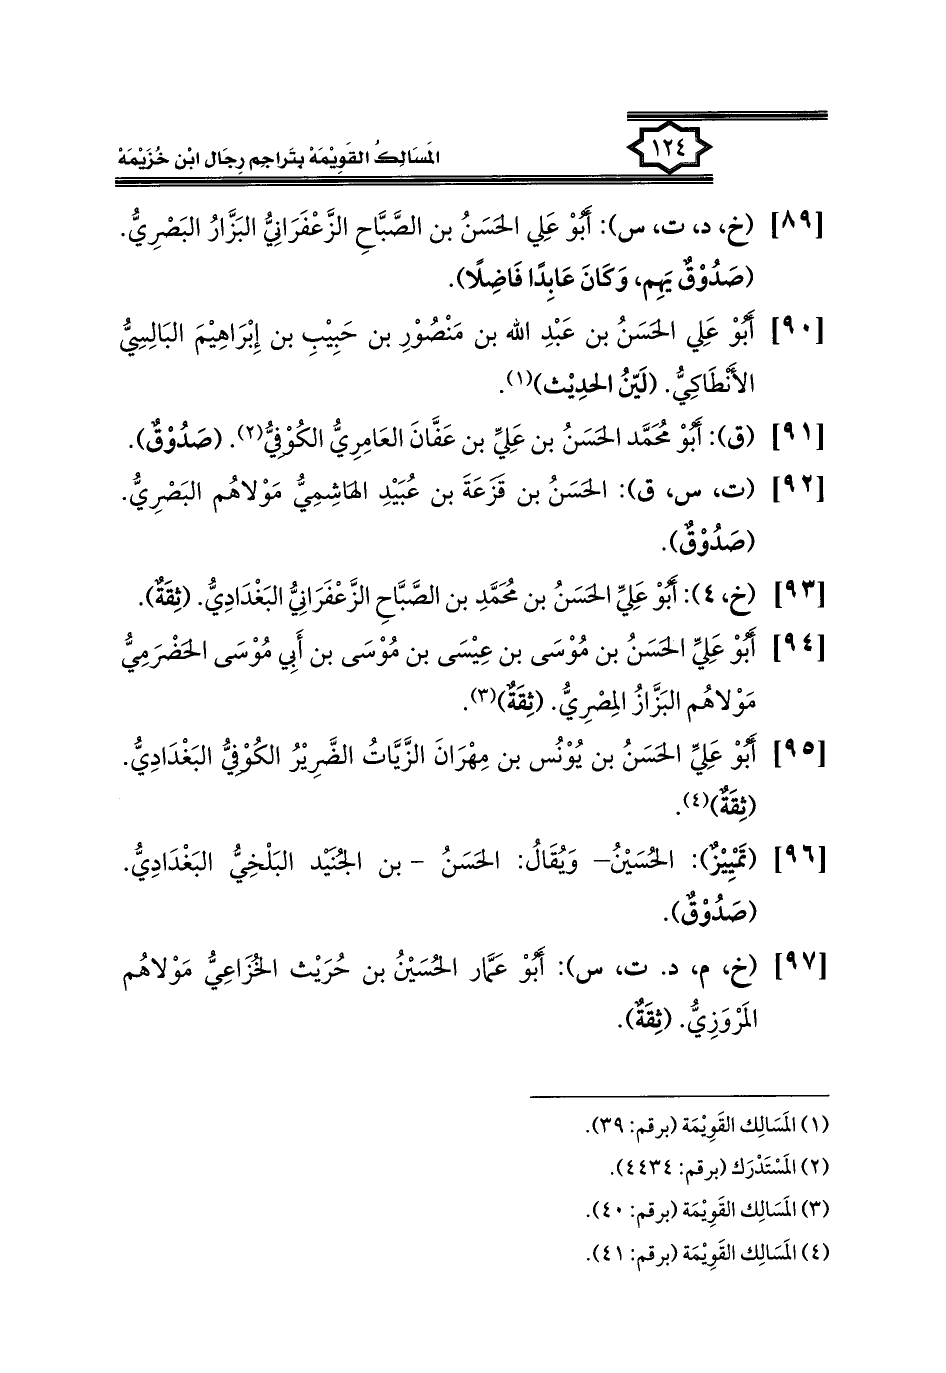 ١٢٤
المَسَالِكُ القَوِيْمَةُ بِتَرَاجِمِ رِجَالِ ابْنِ خُزَيْمَةَ
[٨٩] (خ، د، ت، س): أَبُوْ عَلِي الحَسَنُ بن الصَّبَّاحِ الزَّعْفَرَانِيُّ البَزَّارُ البَصْرِيُّ.
(صَدُوْقٌ يَهِم، وَكَانَ عَابِدًا فَاضِلًا).
[٩٠] أَبُوْ عَلِي الحَسَنُ بن عَبْدِ الله بن مَنْصُوْرِ بن حَبِيْبِ بن إِبْرَاهِيْمَ البَالِسِيُّ
الأَنْطَاكِيُّ. (لَيِّنُ الحَدِيْث)(١).
[٩١] (ق): أَبُوْ مُحَمَّد الحَسَنُ بن عَلِيِّ بن عَفَّانَ العَامِرِيُّ الكُوْفِيُّ(٢). (صَدُوْقٌ).
[٩٢] (ت، س، ق): الحَسَنُ بن قَزَعَةَ بن عُبَيْدِ الهَاشِمِيُّ مَوْلاهُم البَصْرِيُّ.
(صَدُوْقٌ).
[٩٣] (خ، ٤): أَبُوْ عَلِيِّ الحَسَنُ بن مُحَمَّدِ بن الصَّبَّاحِ الزَّعْفَرَانِيُّ البَغْدَادِيُّ. (ثِقَةٌ).
[٩٤] أَبُوْ عَلِيِّ الحَسَنُ بن مُوْسَى بن عِيْسَى بن مُوْسَى بن أَبِي مُوْسَى الحَضْرَمِيُّ
مَوْلاهُم البَزَّازُ المِصْرِيُّ. (ثِقَةٌ)(٣).
[٩٥] أَبُوْ عَلِيِّ الحَسَنُ بن يُوْنُس بن مِهْرَانَ الزَّيَّاتُ الضَّرِيْرُ الكُوْفِيُّ البَغْدَادِيُّ.
(ثِقَةٌ)(٤).
[٩٦] (تَمْيِيْزٌ): الحُسَيْنُ– وَيُقَالُ: الحَسَنُ – بن الجُنَيْد البَلْخِيُّ البَغْدَادِيُّ.
(صَدُوْقٌ).
[٩٧] (خ، م، د. ت، س): أَبُوْ عَمَّار الحُسَيْنُ بن حُرَيْث الخُزَاعِيُّ مَوْلاهُم
المَرْوَزِيُّ. (ثِقَةٌ).
(١) المَسَالِك القَوِيْمَة (برقم: ٣٩).
(٢) المَسْتَدْرَك (برقم: ٤٤٣٤).
(٣) المَسَالِك القَوِيْمَة (برقم: ٤٠).
(٤) المَسَالِك القَوِيْمَة (برقم: ٤١).